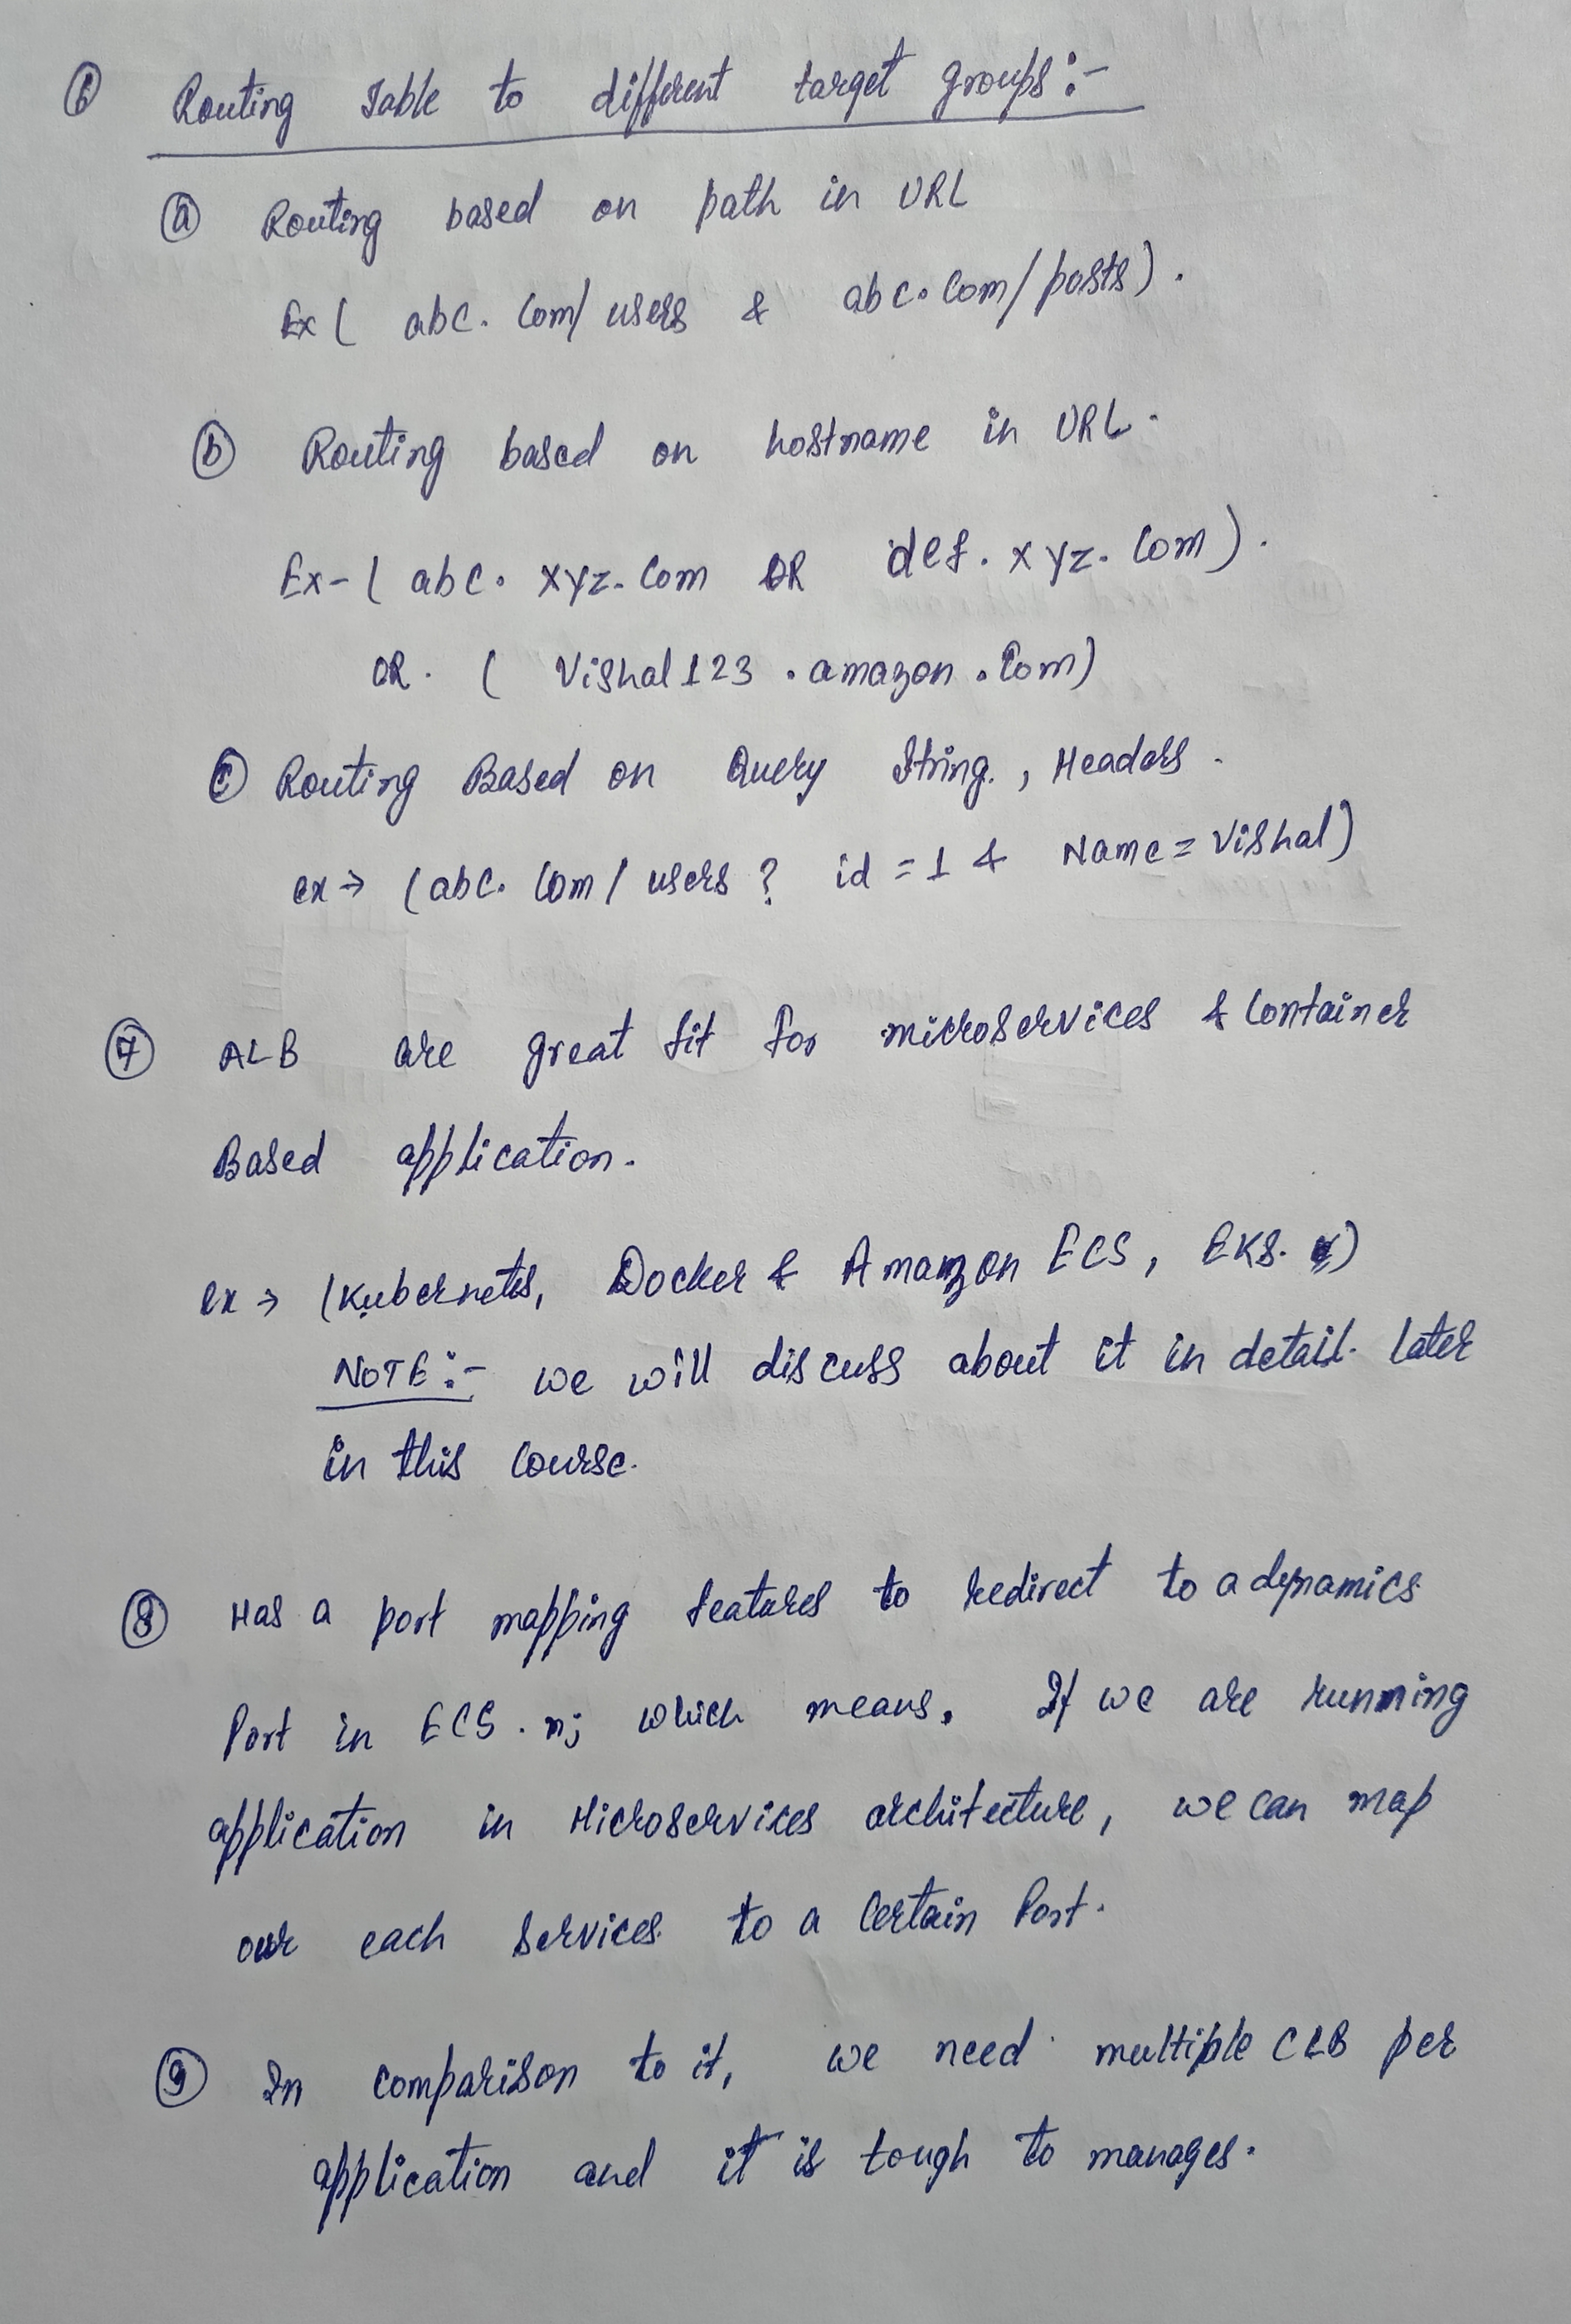 ⑥ Routing Table to different target groups:-
ⓐ Routing based on path in URL
Ex ( abc.com/users & abc.com/posts).
ⓑ Routing based on hostname in URL.
Ex- ( abc.xyz.com OR def.xyz.com).
OR. ( Vishal123.amazon.com)
ⓒ Routing Based on Query String, Headers.
ex → (abc.com/users? id=1 & Name=Vishal)
⑦ ALB are great fit for microservices & Container
Based application.
ex → (Kubernetes, Docker & Amazon ECS, EKS.)
NOTE:- we will discuss about it in detail. later
in this course.
⑧ Has a port mapping features to redirect to a dynamics
Port in ECS. ; which means. If we are running
application in Microservices architecture, we can map
our each services to a Certain Port.
⑨ In comparison to it, we need multiple CLB per
application and it is tough to manages.